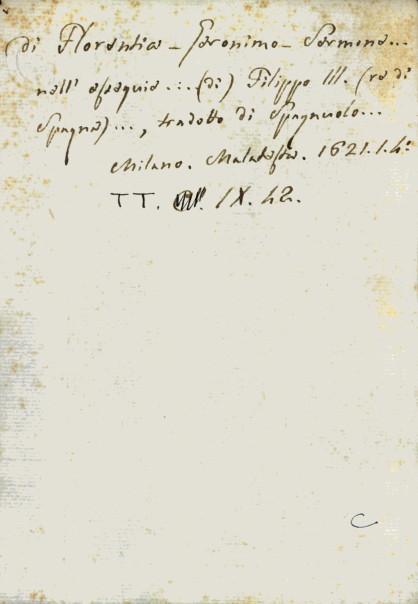 di Florentia - Geronimo - Sermone...
nell' esequie ... (di) Filippo III. (re di
Spagna) ..., tradotto di Spagnuolo...
Milano. Malatesta. 1621. 1. 4:
TT. IX. 42.
C